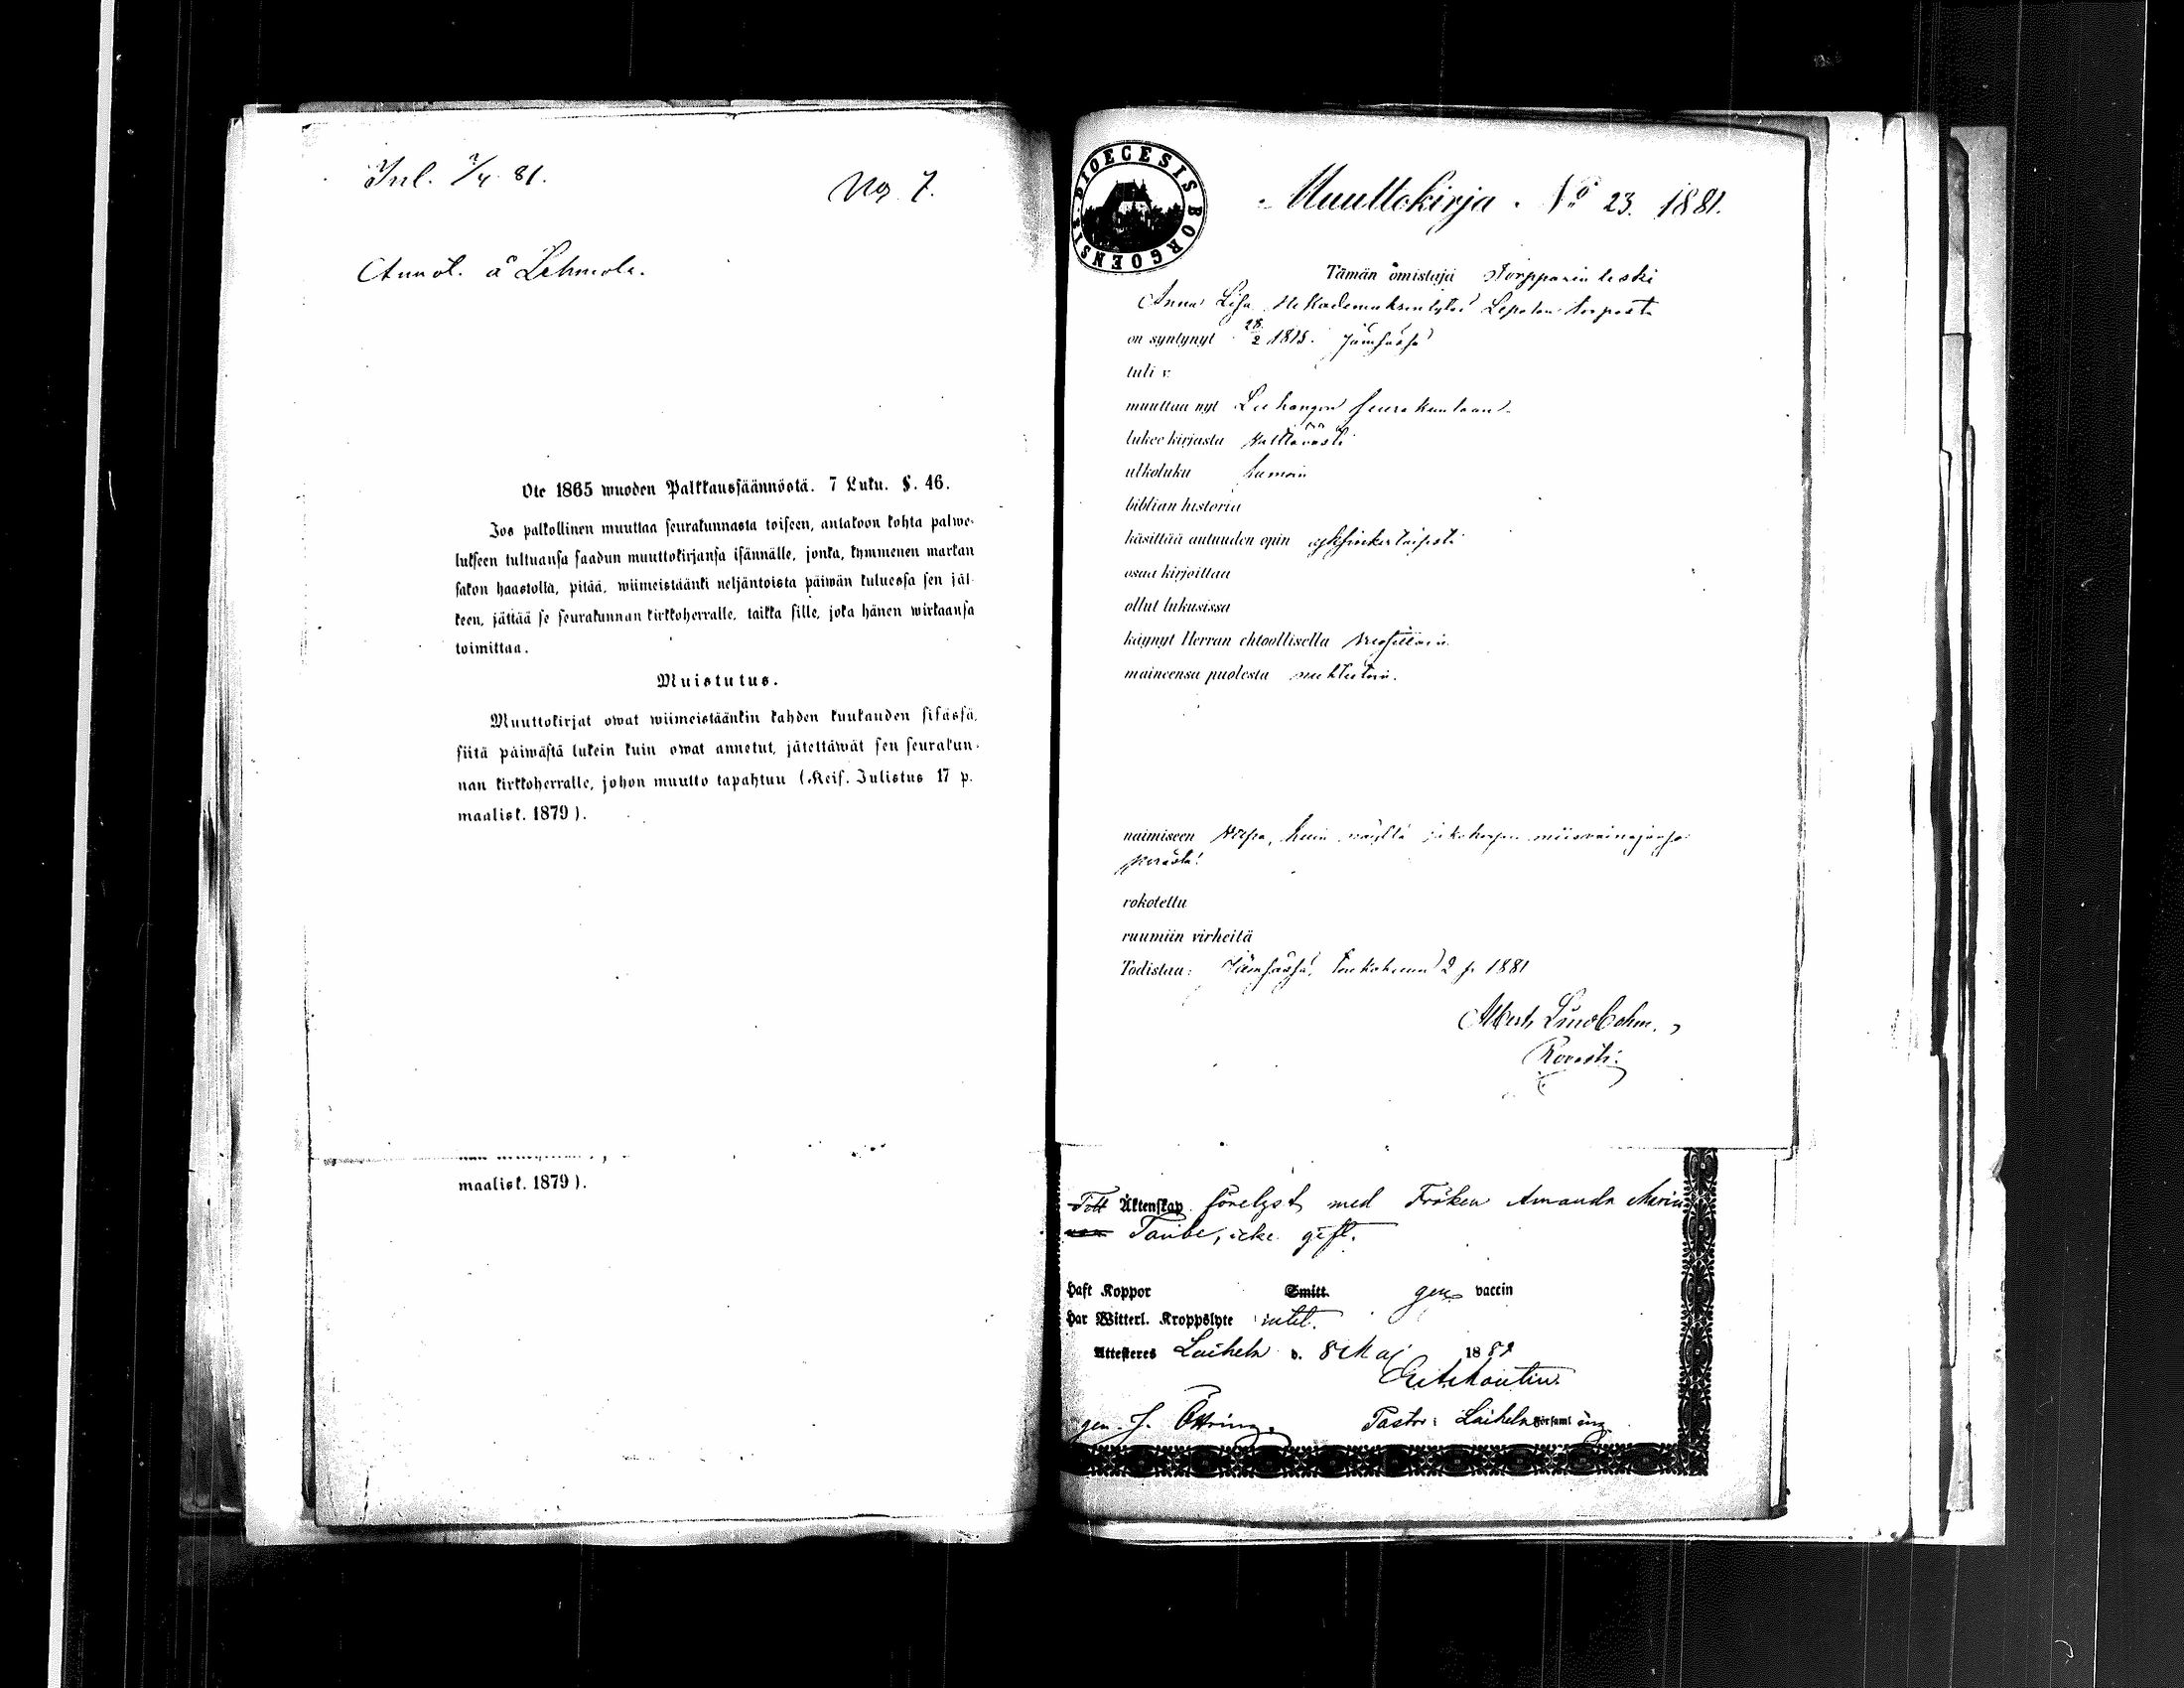 Inl. 7/4 81.
No 7.
Annot. å Lehmola.
Ote 1865 wuoden Palkkaussäännöstä. 7 Luku. §. 46.
Jos palkollinen muuttaa seurakunnasta toiseen, antakoon kohta palwe-
lukseen tultuansa saadun muuttokirjansa isännälle, jonka, kymmenen markan
sakon haastolla, pitää, wiimeistäänki neljäntoista päiwän kuluessa sen jäl-
keen, jättää se seurakunnan kirkkoherralle, taikka sille, joka hänen wirkaansa
toimittaa.
Muistutus.
Muuttokirjat owat wiimeistäänkin kahden kuukauden sisässä,
siitä päiwästä lukein kuin owat annetut, jätettäwät sen seurakun-
nan kirkkoherralle, johon muutto tapahtuu (Keis. Julistus 17 p.
maalisk. 1879).
maalisk. 1879).
DIOECESIS BORGOENSIS
Muuttokirja. No 23. 1881.
Tämän omistaja Torpparin leski
Anna Lisa torpasta
on syntynyt 28/2 1818. Jämsässä
tuli v.
muuttaa nyt Luhangon seurakuntaan.
lukee kirjasta välttävästi
ulkoluku samoin
biblian historia
käsittää autuuden opin yksinkertaisesti
osaa kirjoittaa
ollut lukusissa
käynyt Herran ehtoollisella
maineensa puolesta nuhteetoin.
naimiseen vapaa, kuin miesvainajansa
perästä.
rokotettu
ruumiin virheitä
Todistaa: Jämsässä, Toukokuun 2 p. 1881
Albert Lindbohm.
Rovasti.
Äktenskap förelyst med Fröken Amanda Maria
Taube, icke gift.
Haft Koppor Smitt. gen vaccin
Har Witterl. Kroppslyte intet.
Attesteres Laihela d. 8 Maj 18
gen J. Östring. Pastor i Laihela Församling